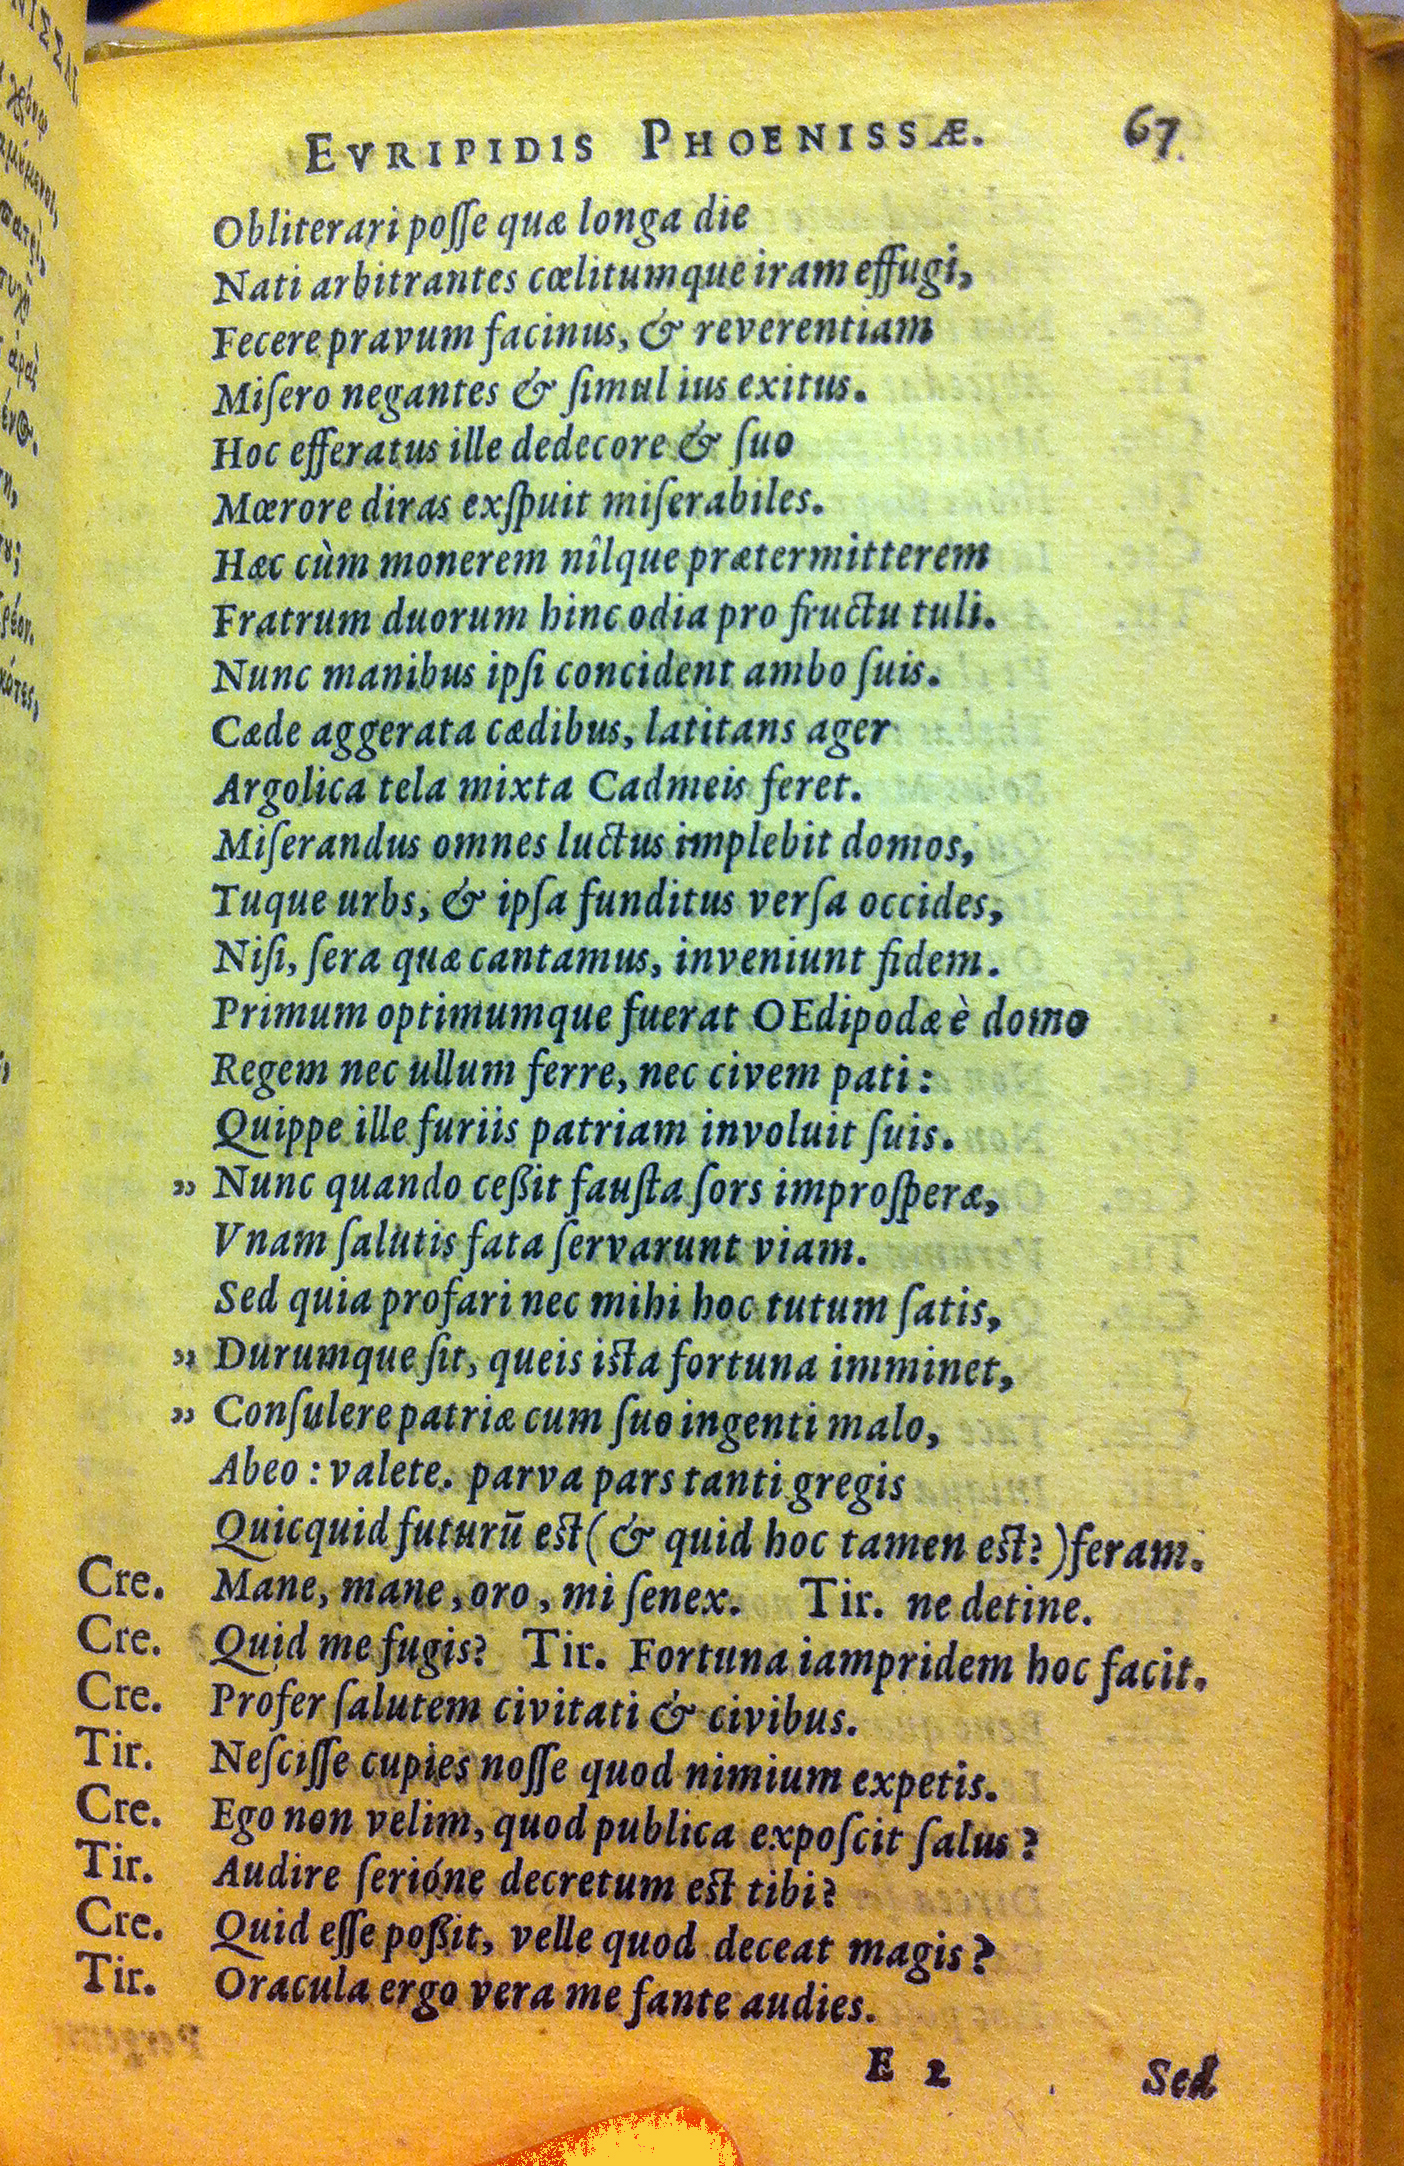 EVRIPIDIS PHOENISSÆ. 67
Obliterari poſſe quæ longa die
Nati arbitrantes cœlitumque iram effugi,
Fecere pravum facinus, & reverentiam
Miſero negantes & ſimul ius exitus.
Hoc efferatus ille dedecore & ſuo
Mœrore diras exſpuit miſerabiles.
Hæc cùm monerem nîlque prætermitterem
Fratrum duorum hinc odia pro fructu tuli.
Nunc manibus ipſi concident ambo ſuis.
Cæde aggerata cædibus, latitans ager
Argolica tela mixta Cadmeis feret.
Miſerandus omnes luctus implebit domos,
Tuque urbs, & ipſa funditus verſa occides,
Niſi, ſera quæ cantamus, inveniunt fidem.
Primum optimumque fuerat OEdipodæ è domo
Regem nec ullum ferre, nec civem pati:
Quippe ille furiis patriam involuit ſuis.
„ Nunc quando ceßit fauſta ſors improſperæ,
Vnam ſalutis fata ſervarunt viam.
Sed quia profari nec mihi hoc tutum ſatis,
„ Durumque ſit, queis iſta fortuna imminet,
„ Conſulere patriæ cum ſuo ingenti malo,
Abeo: valete. parva pars tanti gregis
Quicquid futurū eſt (& quid hoc tamen eſt?) feram.
Cre. Mane, mane, oro, mi ſenex. Tir. ne detine.
Cre. Quid me fugis? Tir. Fortuna iampridem hoc facit.
Cre. Profer ſalutem civitati & civibus.
Tir. Neſciſſe cupies noſſe quod nimium expetis.
Cre. Ego non velim, quod publica expoſcit ſalus?
Tir. Audire ſerióne decretum eſt tibi?
Cre. Quid eſſe poßit, velle quod deceat magis?
Tir. Oracula ergo vera me fante audies.
E 2 Sed